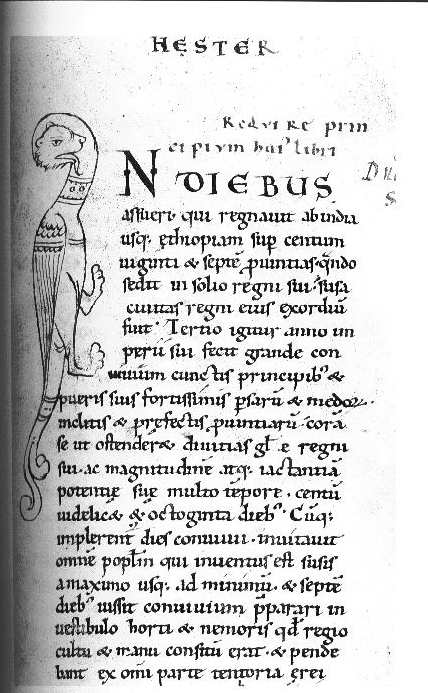 HESTER
Require prin
cipium hui' libri
N DIEBUS
assueri. qui regnauit ab india
usq; ęthiopiam sup centum
uiginti & septē puintias. q̄ndo
sedit in solio regni sui. susa
ciuitas regni eius exordiū
fuit. Tertio igitur anno im
perii sui fecit grande con
uiuium cunctis principib' &
pueris suis fortissimis psarū & medor.
inclitis & pręfectis puintiarū corā
se ut ostender& diuitias gl̄e regni
sui. ac magnitudinē atq; iactantiā
potentię suę multo tēpore. centū
uidelic& & octoginta dieb'. Cūq;
implerent dies conuiuii. inuitauit
omnē poplm qui inuentus est susis
a maximo usq; ad minimū. & septē
dieb' iussit conuiuium p̄parari in
uestibulo horti & nemoris qd̄ regio
cultu & manu consitū erat. & pende
bant ex omi parte tentoria ęrei